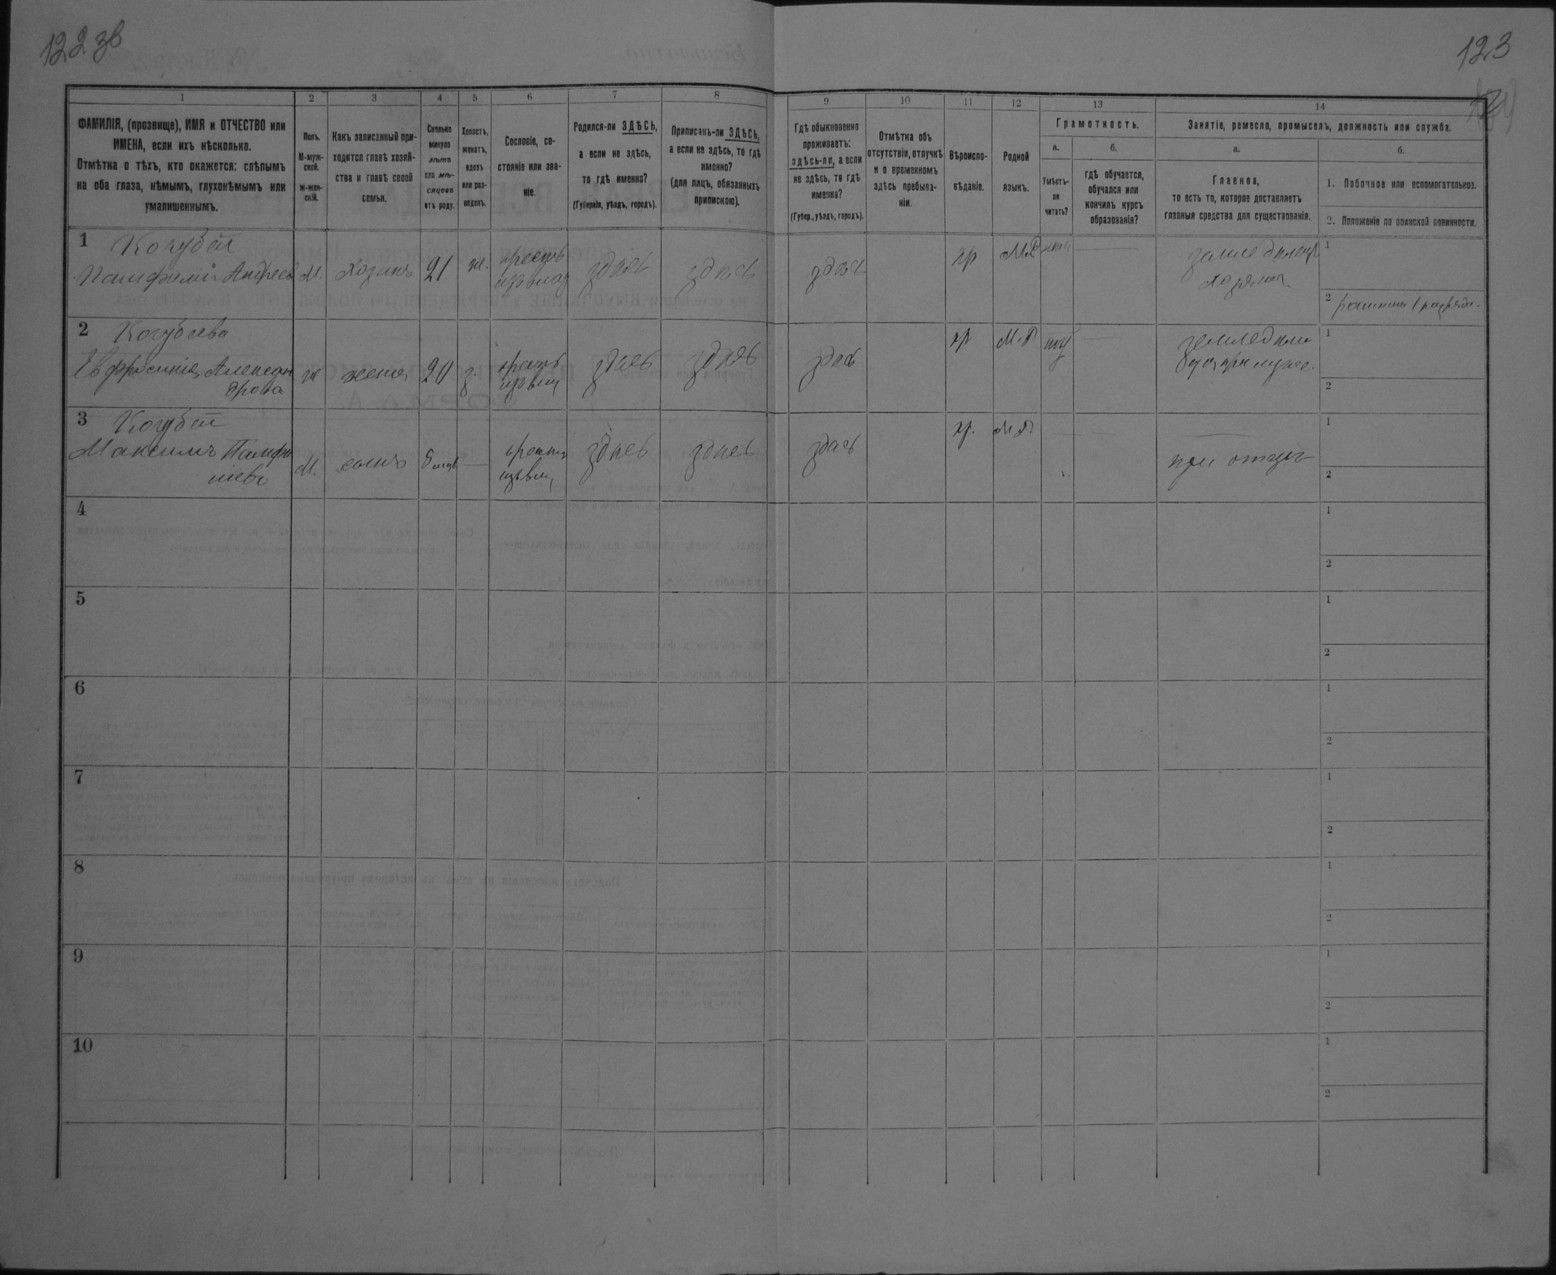 122 зв
123
1
2
3
4
5
6
7
8
9
10
11
12
13
14
ФАМИЛІЯ, (прозвище), ИМЯ и ОТЧЕСТВО или
ИМЕНА, если ихъ нѣсколько.
Отмѣтка о тѣхъ, кто окажется: слѣпымъ
на оба глаза, нѣмымъ, глухонѣмымъ или
умалишеннымъ.
Полъ.
М-муж-
ской.
Ж-жен-
скій.
Какъ записанный при-
ходится главѣ хозяй-
ства и главѣ своей
семьи.
Сколько
минуло
лѣтъ
или мѣ-
сяцевъ
отъ роду.
Холостъ,
женатъ,
вдовъ
или раз-
веденъ.
Сословіе, со-
стояніе или зва-
ніе.
Родился-ли ЗДѢСЬ,
а если не здѣсь,
то гдѣ именно?
(Губернія, уѣздъ, городъ).
Приписанъ-ли ЗДѢСЬ,
а если не здѣсь, то гдѣ
именно?
(для лицъ, обязанныхъ
припискою).
Гдѣ обыкновенно
проживаетъ:
здѣсь-ли, а если
не здѣсь, то гдѣ
именно?
(Губер., уѣздъ, городъ).
Отмѣтка объ
отсутствіи, отлучкѣ
и о временномъ
здѣсь пребыва-
ніи.
Вѣроиспо-
вѣданіе.
Родной
языкъ.
Грамотность.
а.
Умѣетъ-
ли
читать?
б.
гдѣ обучается,
обучался или
кончилъ курсъ
образованія?
Занятіе, ремесло, промыселъ, должность или служба.
а.
Главное,
то есть то, которое доставляетъ
главныя средства для существованія.
б.
1. Побочное или вспомогательное.
2. Положеніе по воинской повинности.
1
Когубай
Панфилій Андреев
М.
Хозяинъ
21
ж.
здѣсь
здѣсь
здѣсь
пр
хозяинъ
1
2
2
Когубаева
Евфросинія Алексан
дрова
ж
жена
20
з.
здѣсь
здѣсь
здѣсь
пр
М.Р
1
2
3
Когубай
Максимъ Панфи
лиевъ
М.
сынъ
5 мѣс
здѣсь
здѣсь
здѣсь
пр.
при отцѣ
1
2
4
1
2
5
1
2
6
1
2
7
1
2
8
1
2
9
1
2
10
1
2